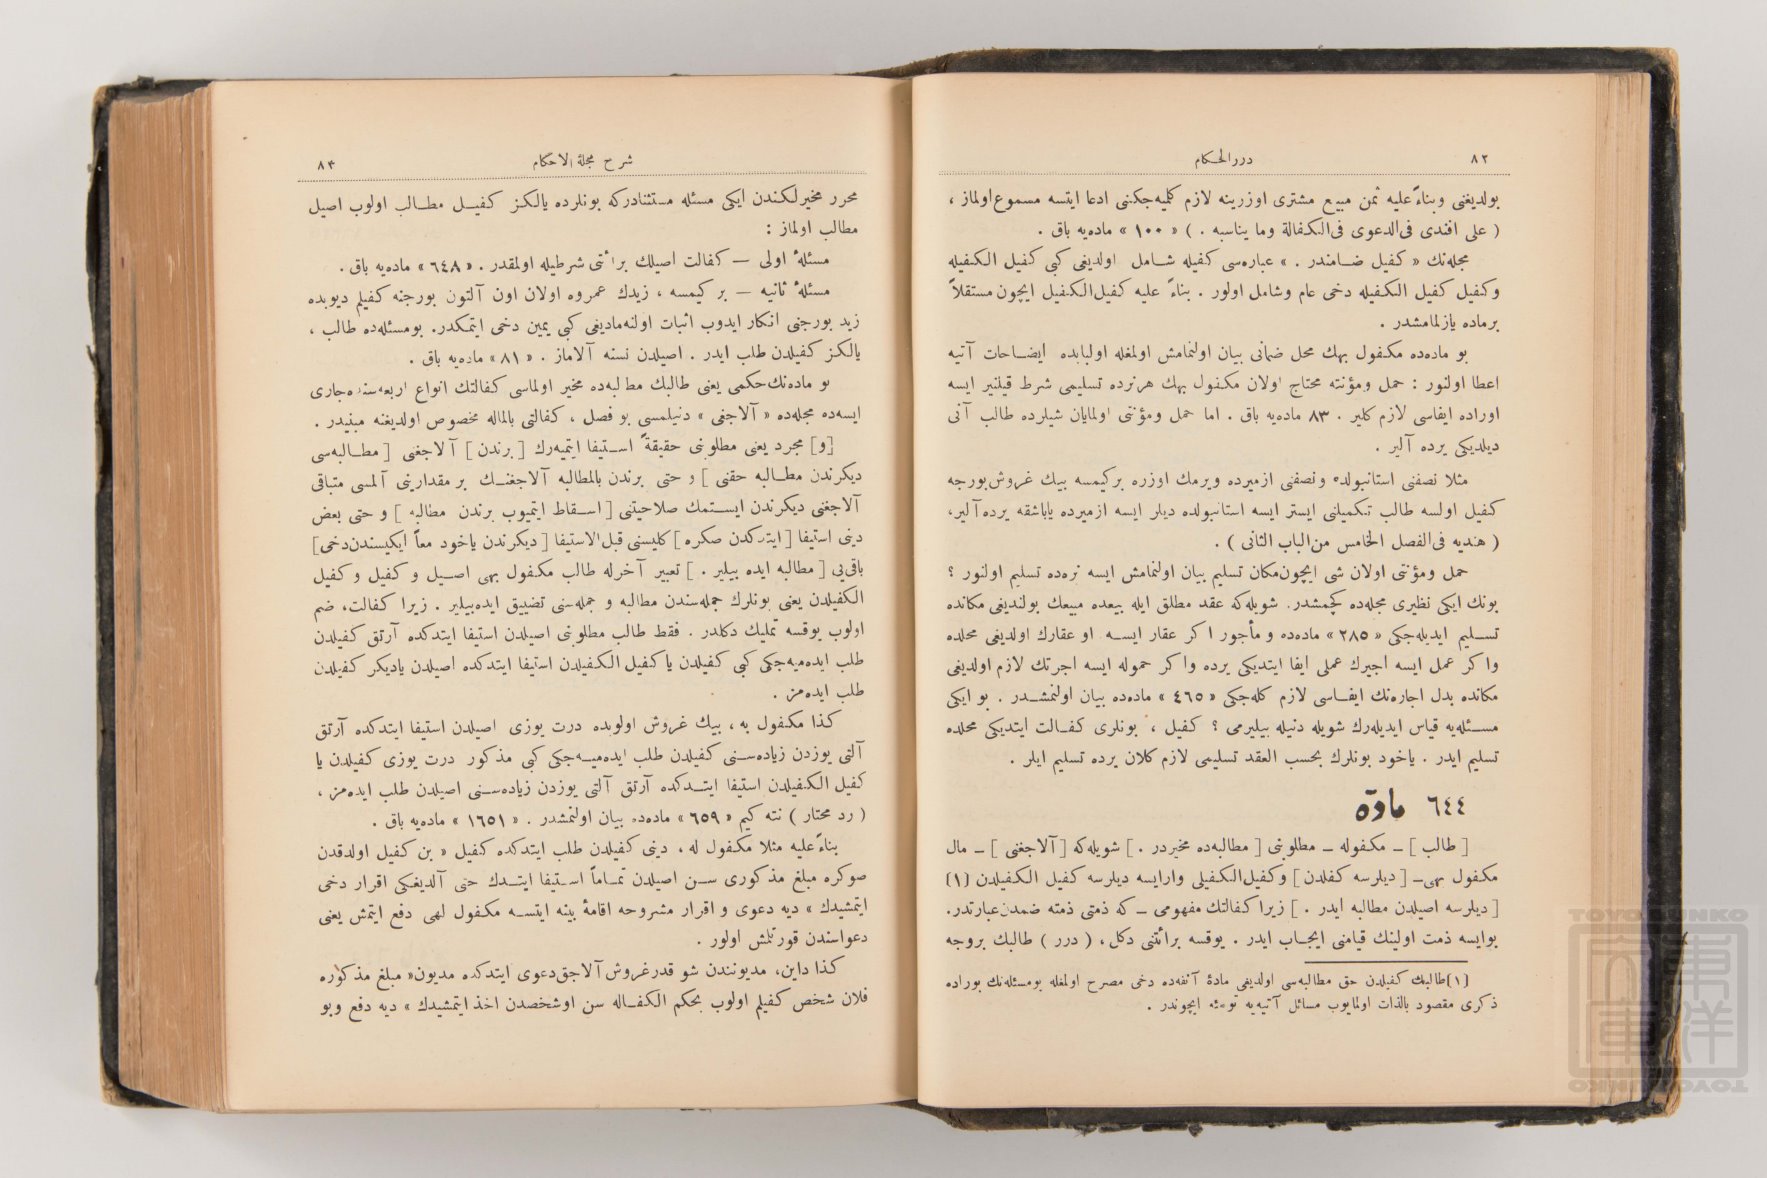 ٨٢ دررالحكام
بولديغى وبناءً عليه ثمن مبيع مشترى اوزرينه لازم كلميه‌جكنى ادعا ايتسه مسموع اولماز ،
( على افندى فى‌الدعوى فى‌الكفالة وما يناسبه . ) « ١٠٠ » ماده‌يه باق .
مجله‌نك « كفيل ضامندر . » عباره‌سى كفيله شامل اولديغى كبى كفيل الكفيله
وكفيل كفيل الكفيله دخى عام وشامل اولور . بناءً عليه كفيل‌الكفيل ايچون مستقلاً
برماده يازلمامشدر .
بو ماده‌ده مكفول بهك محل ضمانى بيان اولنمامش اولمغله اولبابده ايضاحات آتيه
اعطا اولنور : حمل ومؤنته محتاج اولان مكفول بهك هرنرده تسليمى شرط قيلنير ايسه
اوراده ايفاسى لازم كلير . ٨٣ ماده‌يه باق . اما حمل ومؤنتى اولمايان شيلرده طالب آنى
ديلديكى يرده آلير .
مثلا نصفنى استانبولده ونصفنى ازميرده ويرمك اوزره بركيمسه بيك غروش بورجه
كفيل اولسه طالب تكميلنى ايستر ايسه استانبولده ديلر ايسه ازميرده ياباشقه يرده آلير،
( هنديه فى‌الفصل الخامس من‌الباب الثانى ) .
حمل ومؤنتى اولان شى ايچون‌مكان تسليم بيان اولنمامش ايسه نره‌ده تسليم اولنور ؟
بونك ايكى نظيرى مجله‌ده كچمشدر. شويله‌كه عقد مطلق ايله بيعده مبيعك بولنديغى مكانده
تسليم ايديله‌جكى « ٢٨٥ » ماده‌ده و مأجور اكر عقار ايسه او عقارك اولديغى محلده
واكر عمل ايسه اجيرك عملى ايفا ايتديكى يرده واكر حموله ايسه اجرتك لازم اولديغى
مكانده بدل اجاره‌نك ايفاسى لازم كله‌جكى « ٤٦٥ » ماده‌ده بيان اولنمشدر . بو ايكى
مسئله‌يه قياس ايديله‌رك شويله دنيله بيليرمى ؟ كفيل ، بونلرى كفالت ايتديكى محلده
تسليم ايدر . ياخود بونلرك بحسب العقد تسليمى لازم كلان يرده تسليم ايلر .
٦٤٤ مادّه
[ طالب ] ـ مكفوله ـ مطلوبنى [ مطالبه‌ده مخيردر . ] شويله‌كه [ آلاجغنى ] ـ مال
مكفول بهى ـ [ ديلرسه كفلدن ] وكفيل‌الكفيلى وارايسه ديلرسه كفيل الكفيلدن (١)
[ ديلرسه اصيلدن مطالبه ايدر . ] زيرا كفالتك مفهومى ـ كه ذمتى ذمته ضمدن عبارتدر.
بوايسه ذمت اولينك قيامنى ايجاب ايدر . يوقسه برائتنى دكل، ( درر ) طالبك بروجه
(١) طالبك كفيلدن حق مطالبه‌سى اولديغى مادهٔ آنفه‌ده دخى مصرح اولمغله بومسئله‌نك بوراده
ذكرى مقصود بالذات اولمايوب مسائل آتيه‌يه توطئه ايچوندر .
شرح مجلة الاحكام ٨٣
محرر مخيرلكندن ايكى مسئله مستثنادركه بونلرده يالكز كفيل مطالب اولوب اصيل
مطالب اولماز :
مسئلهٔ اولى — كفالت اصيلك برائتى شرطيله اولمقدر . « ٦٤٨ » ماده‌يه باق .
مسئلهٔ ثانيه — بر كيمسه ، زيدك عمروه اولان اون آلتون بورجنه كفيلم ديوبده
زيد بورجنى انكار ايدوب اثبات اولنه‌ماديغى كبى يمين دخى ايتمكدر. بومسئله‌ده طالب ،
يالكز كفيلدن طلب ايدر . اصيلدن نسنه آلاماز . « ٨١ » ماده‌يه باق .
بو ماده‌نك‌حكمى يعنى طالبك مطالبه‌ده مخير اولماسى كفالتك انواع اربعه‌سنده جارى
ايسه‌ده مجله‌ده « آلاجغى » دنيلمسى بو فصل ، كفالتى بالماله مخصوص اولديغنه مبنيدر .
[و] مجرد يعنى مطلوبنى حقيقةً استيفا ايتميه‌رك [ برندن ] آلاجغنى [ مطالبه‌سى
ديكرندن مطالبه حقنى ] و حتى برندن بالمطالبه آلاجغنك بر مقدارينى آلمسى متباقى
آلاجغنى ديكرندن ايستمك صلاحيتنى [ اسقاط ايتميوب برندن مطالبه ] و حتى بعض
دينى استيفا [ ايتدكدن صكره ] كليسنى قبل‌الاستيفا [ ديكرندن ياخود معاً ايكيسندن‌دخى]
باقى‌يى [ مطالبه ايده بيلير . ] تعبير آخرله طالب مكفول بهى اصيل و كفيل و كفيل
الكفيلدن يعنى بونلرك جمله‌سندن مطالبه و جمله‌سنى تضييق ايده‌بيلير . زيرا كفالت، ضم
اولوب يوقسه تمليك دكلدر . فقط طالب مطلوبنى اصيلدن استيفا ايتدكده آرتق كفيلدن
طلب ايده‌ميه‌جكى كبى كفيلدن يا كفيل الكفيلدن استيفا ايتدكده اصيلدن ياديكر كفيلدن
طلب ايده‌مز .
كذا مكفول به ، بيك غروش اولوبده درت يوزى اصيلدن استيفا ايتدكده آرتق
آلتى يوزدن زياده‌سنى كفيلدن طلب ايده‌ميه‌جكى كبى مذكور درت يوزى كفيلدن يا
كفيل الكفيلدن استيفا ايتدكده آرتق آلتى يوزدن زياده‌سنى اصيلدن طلب ايده‌مز ،
( رد محتار ) نته كيم « ٦٥٩ » ماده‌ده بيان اولنمشدر . « ١٦٥١ » ماده‌يه باق .
بناءً عليه مثلا مكفول له ، دينى كفيلدن طلب ايتدكده كفيل « بن كفيل اولدقدن
صوكره مبلغ مذكورى سن اصيلدن تماماً استيفا ايتدك حتى آلديغكى اقرار دخى
ايتمشيدك » ديه دعوى و اقرار مشروحه اقامهٔ بينه ايتسه مكفول لهى دفع ايتمش يعنى
دعواسندن قورتلمش اولور .
كذا داين، مديونندن شو قدرغروش آلاجق‌دعوى ايتدكده مديون« مبلغ مذكوره
فلان شخص كفيلم اولوب بحكم الكفاله سن اوشخصدن اخذ ايتمشيدك » ديه دفع وبو
TOYO BUNKO
東洋文庫